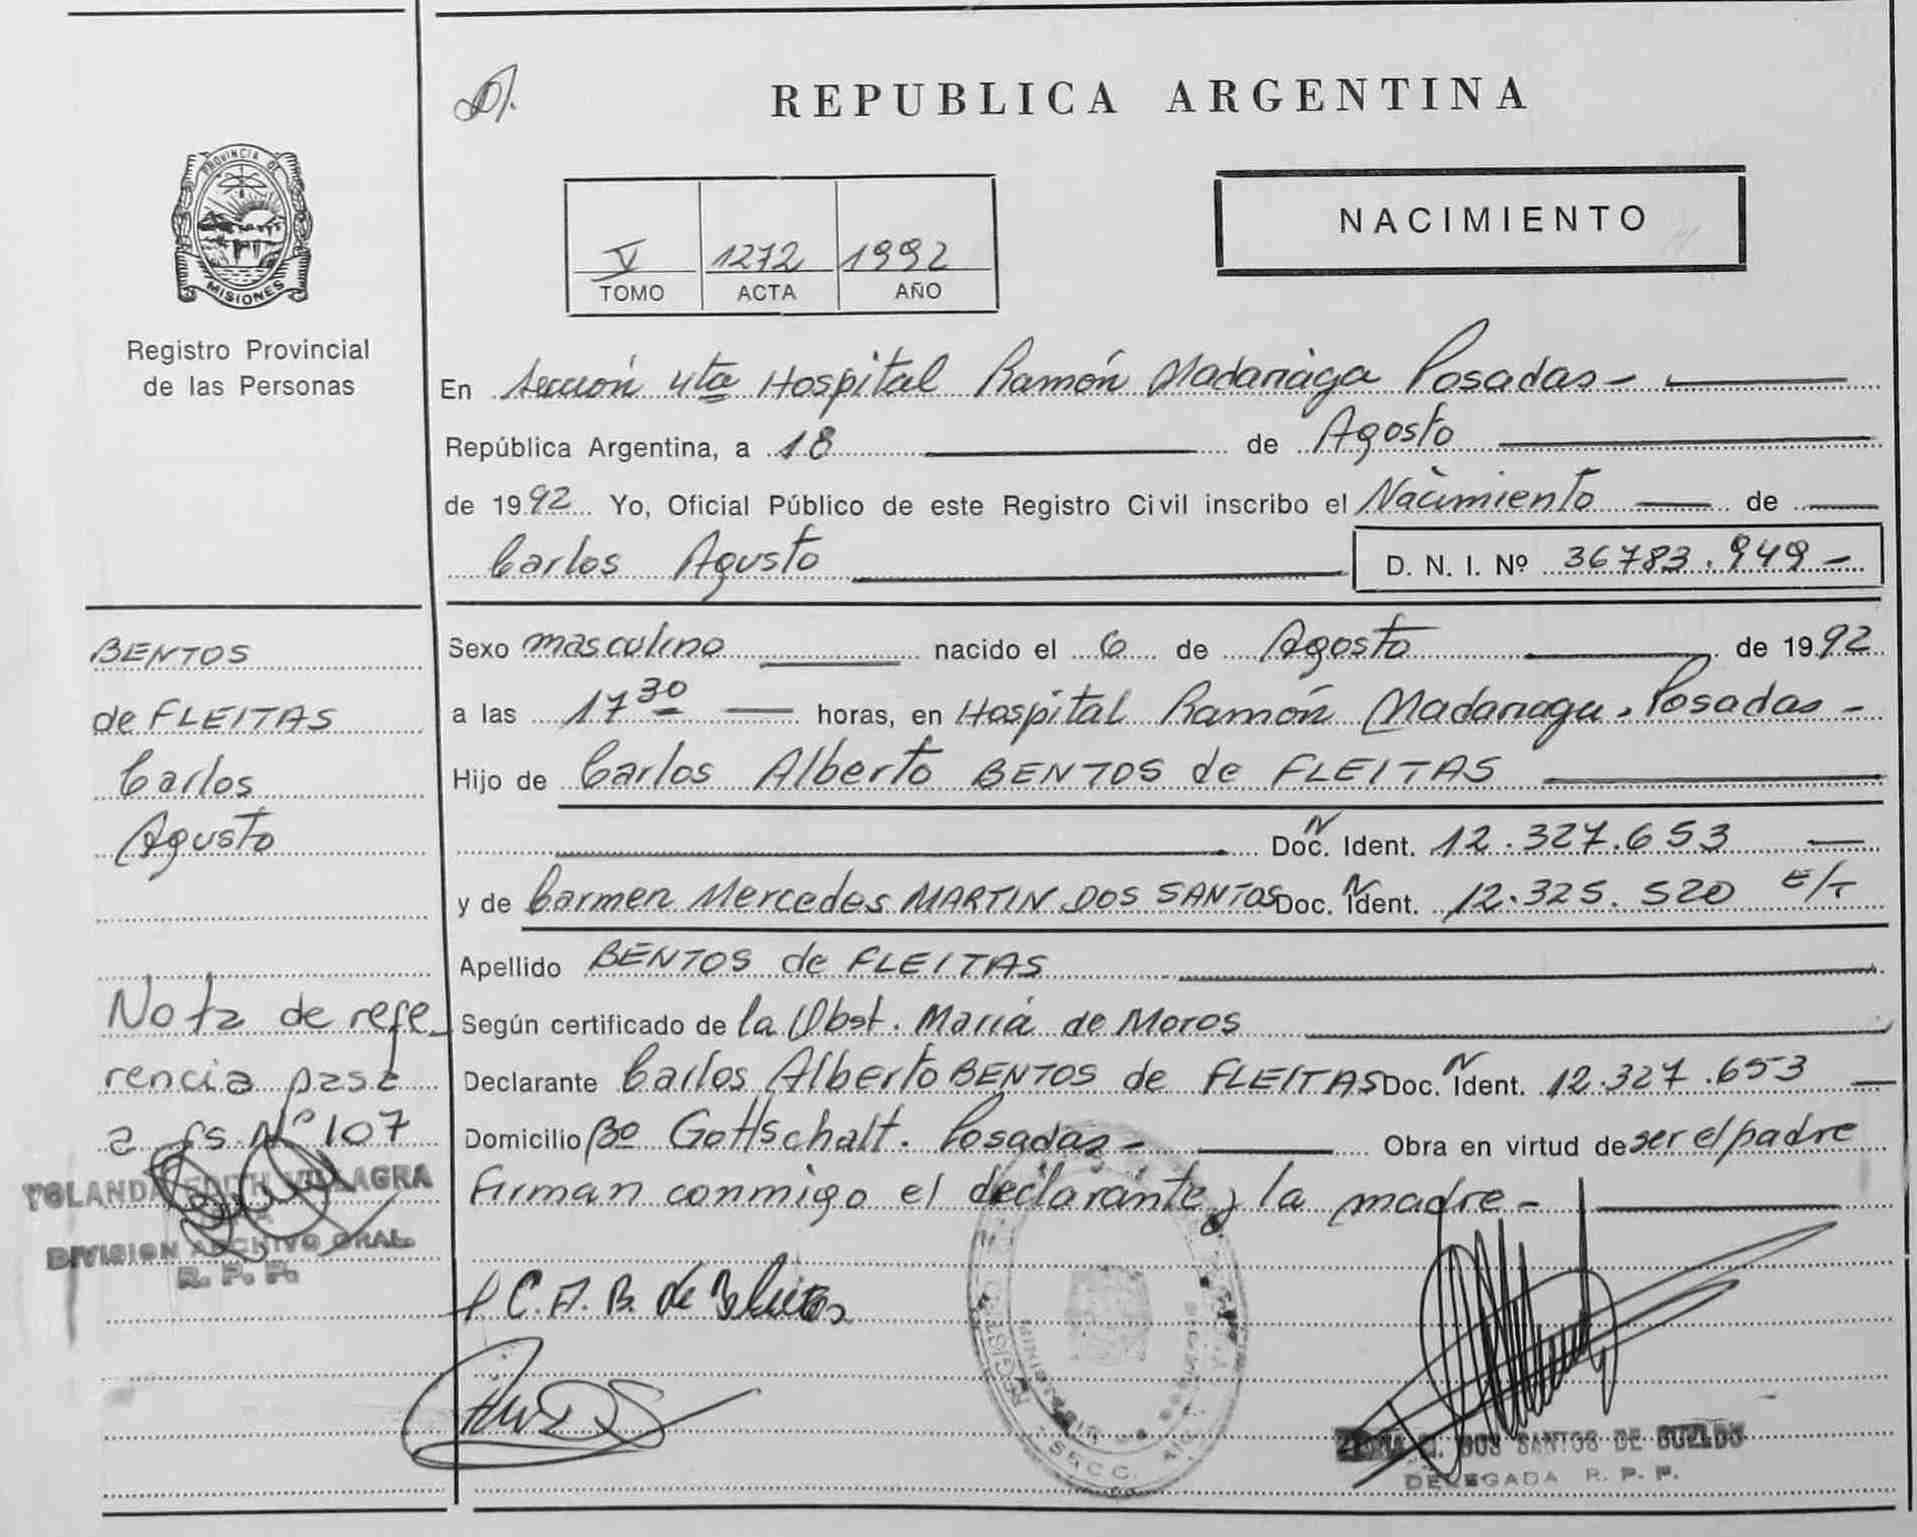 REPUBLICA ARGENTINA
PROVINCIA DE
MISIONES
Registro Provincial
de las Personas
NACIMIENTO
V 1272 1992
TOMO ACTA AÑO
En Sección 4ta Hospital Ramón Madariaga Posadas -
República Argentina, a 18 de Agosto
de 1992 Yo, Oficial Público de este Registro Civil inscribo el Nacimiento de
Carlos Agusto D. N. I. Nº 36783.949 -
BENTOS
de FLEITAS
Carlos
Agusto
Sexo masculino nacido el 6 de Agosto de 1992
a las 17 30 horas, en Hospital Ramón Madariaga. Posadas -
Hijo de Carlos Alberto BENTOS de FLEITAS
Doc. N Ident. 12.327.653
y de Carmen Mercedes MARTIN DOS SANTOS Doc. N Ident. 12.325.520 E/T
Apellido BENTOS de FLEITAS
Según certificado de la Obst. María de Moros
Declarante Carlos Alberto BENTOS de FLEITAS Doc. N Ident. 12.327.653
Domicilio Bº Gottschalt. Posadas - Obra en virtud de ser el padre
Firman conmigo el declarante y la madre -
Nota de refe-
rencia pasa
a fs. Nº 107
YOLANDA EDITH VILLAGRA
DIVISION ARCHIVO GRAL.
R. P. P.
C. A. B. de
DOS SANTOS DE
DELEGADA R. P. P.